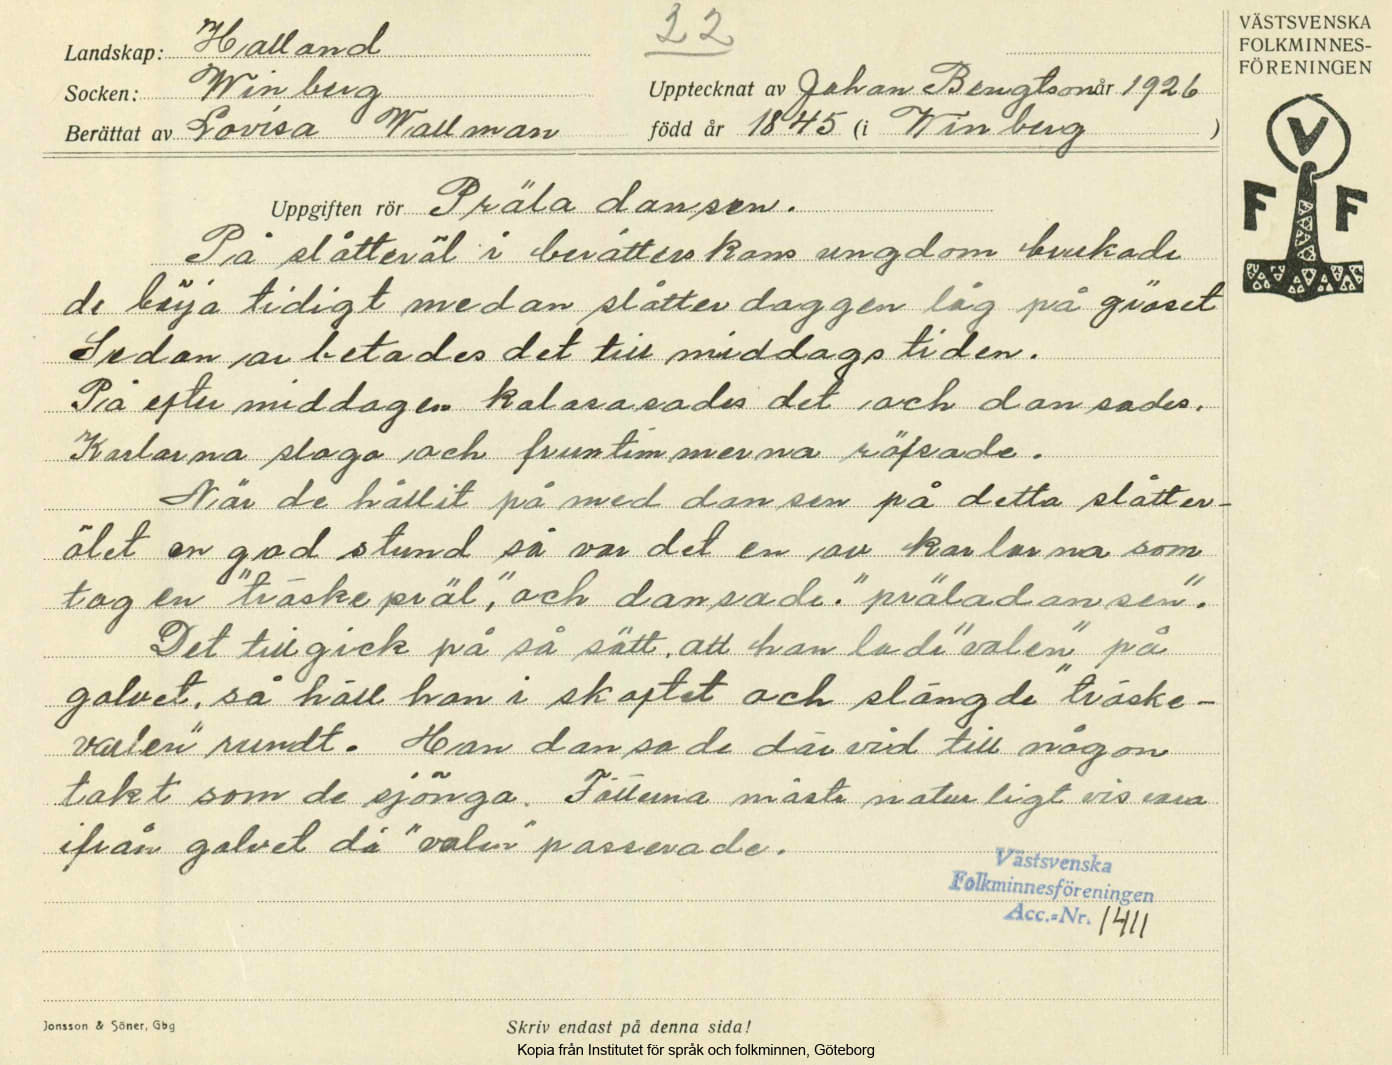 22
VÄSTSVENSKA
FOLKMINNES-
FÖRENINGEN
V
F F
Landskap: Halland
Socken: Winberg
Upptecknat av Johan Bengtson år 1926
Berättat av Lovisa Wallman
född år 1845 (i Winberg )
Uppgiften rör Präla dansen.
På slåtteröl i berätterskans ungdom brukade
de börja tidigt medan slåtterdaggen låg på gräset
Sedan arbetades det till middagstiden.
På eftermiddagen kalasasades det och dansades.
Karlarna slogo och fruntimmerna räfsade.
När de hållit på med dansen på detta slåtter-
ölet en god stund så var det en av karlarna som
tog en "träskepräl", och dansade. "präladansen".
Det tillgick på så sätt, att han lade "valen" på
golvet, så höll han i skaftet och slängde "träske-
valen" rundt. Han dansade därvid till någon
takt som de sjönga. Fötterna måste naturligtvis vara
ifrån golvet då "valen" passerade.
Västsvenska
Folkminnesföreningen
Acc.=Nr. 1411
Jonsson & Söner, Gbg
Skriv endast på denna sida!
Kopia från Institutet för språk och folkminnen, Göteborg